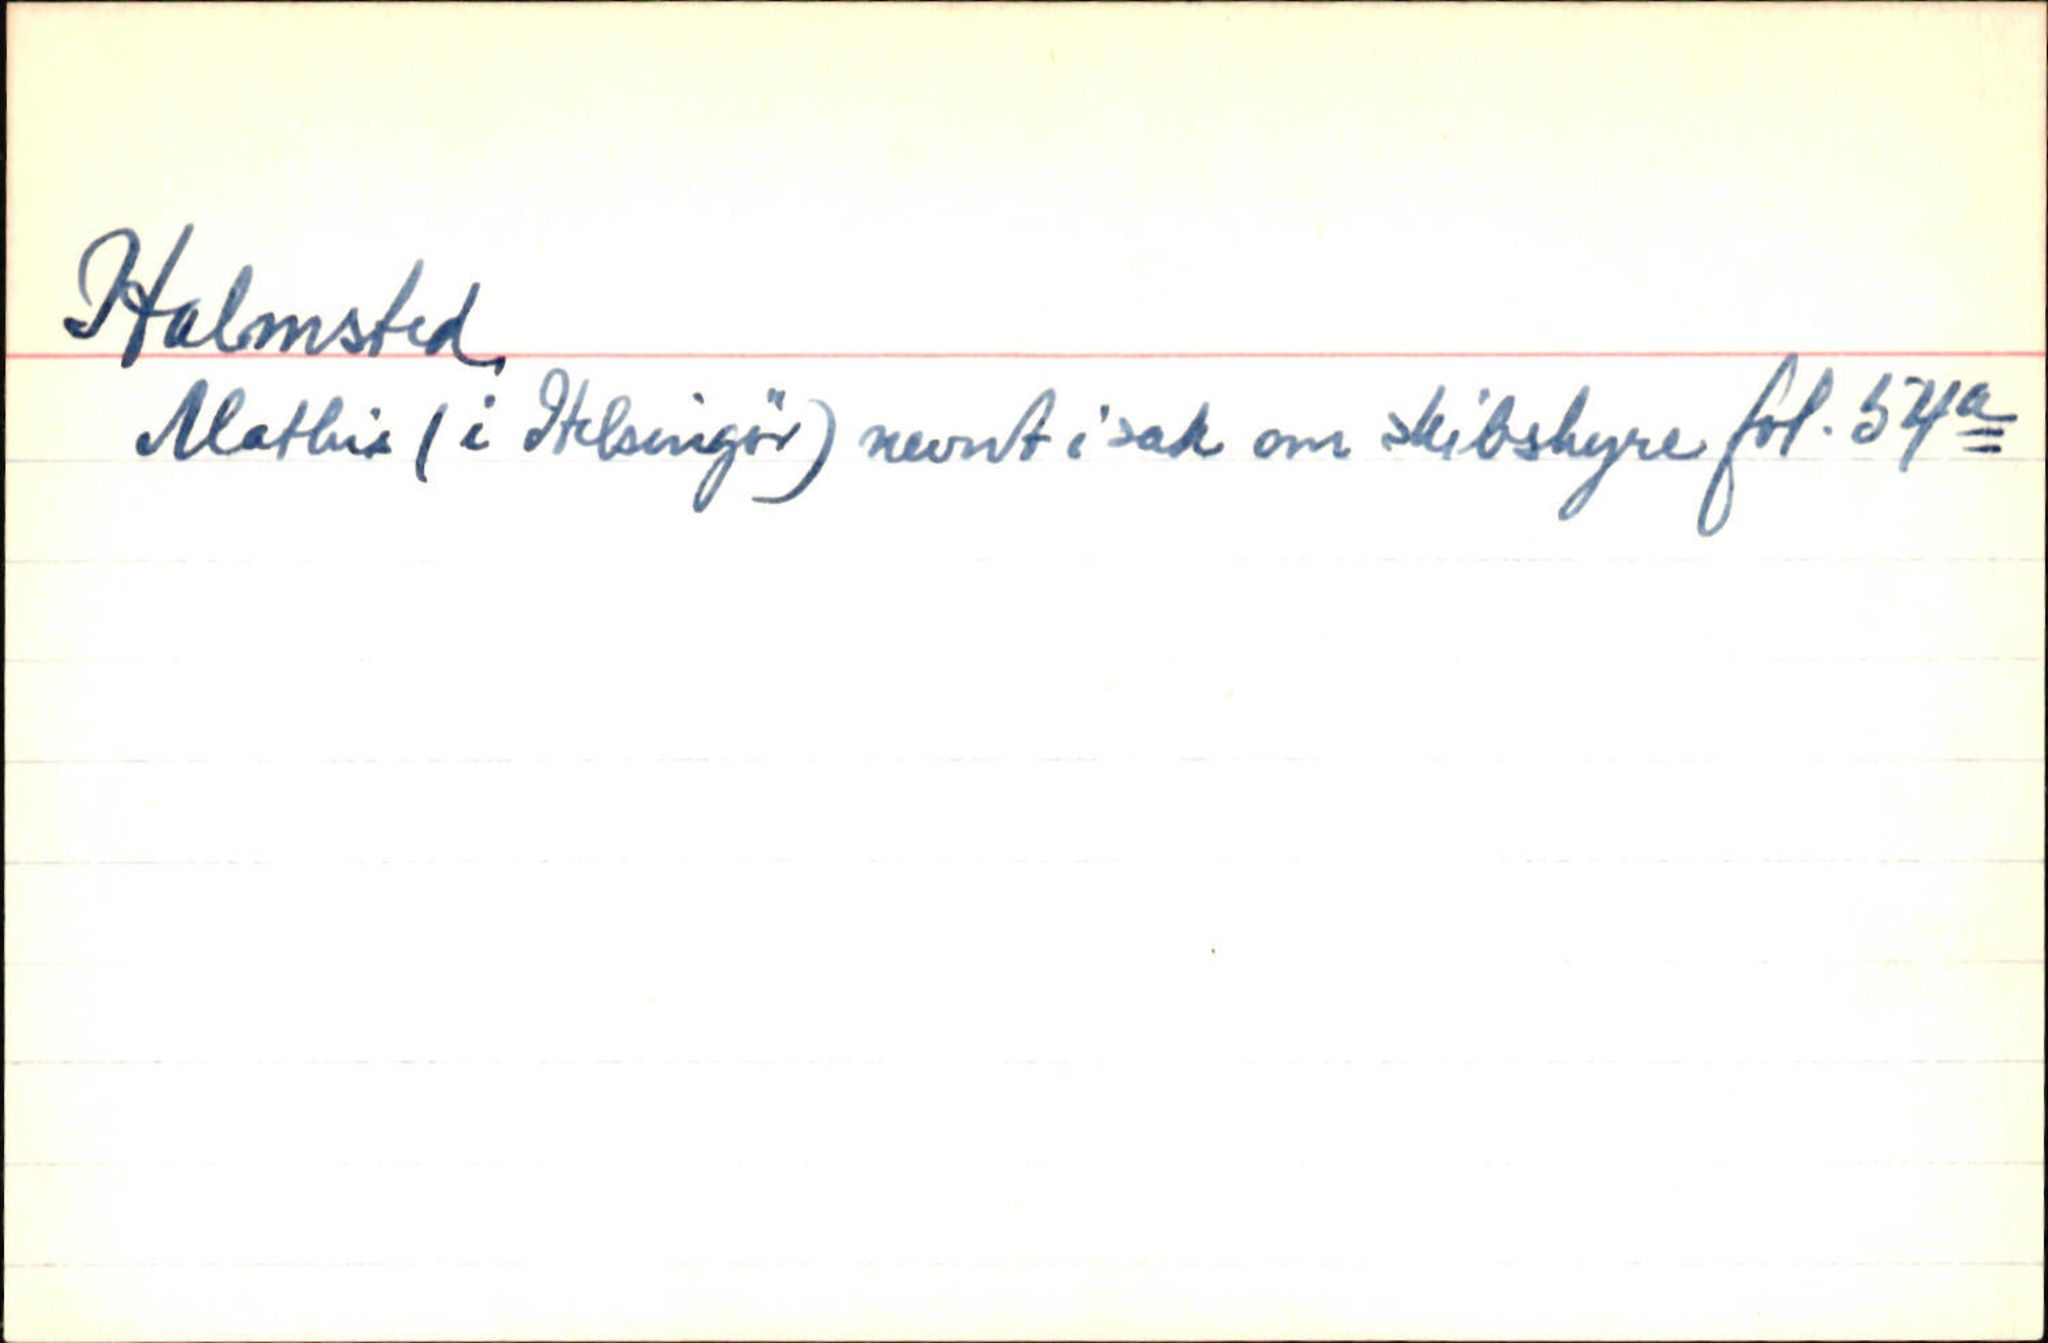 Halmsted,
Mathis (i Helsingör) nevnt i sak om skibshyre fol. 54a